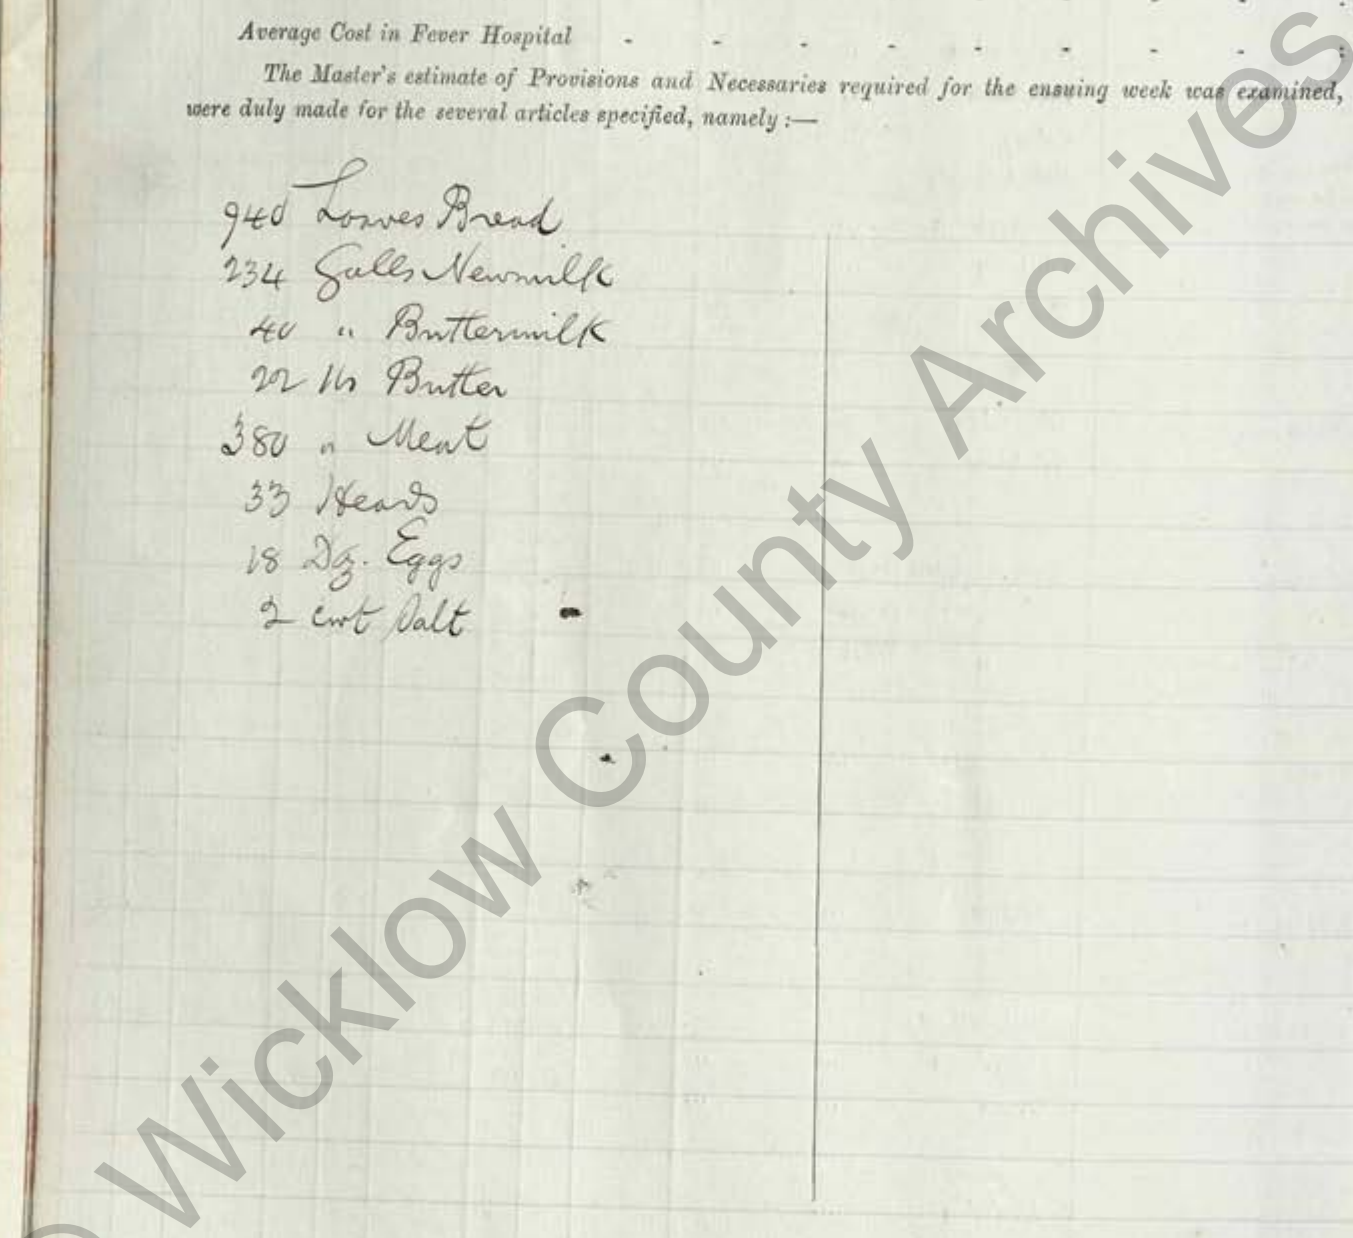 Average Cost in Fever Hospital - - - - - - - - :
The Master's estimate of Provisions and Necessaries required for the ensuing week was examined,
were duly made for the several articles specified, namely :—
940 Loaves Bread
234 Galls Newmilk
40 " Buttermilk
22 lbs Butter
380 " Meat
33 Heads
18 Doz. Eggs
2 cwt Salt
© Wicklow County Archives